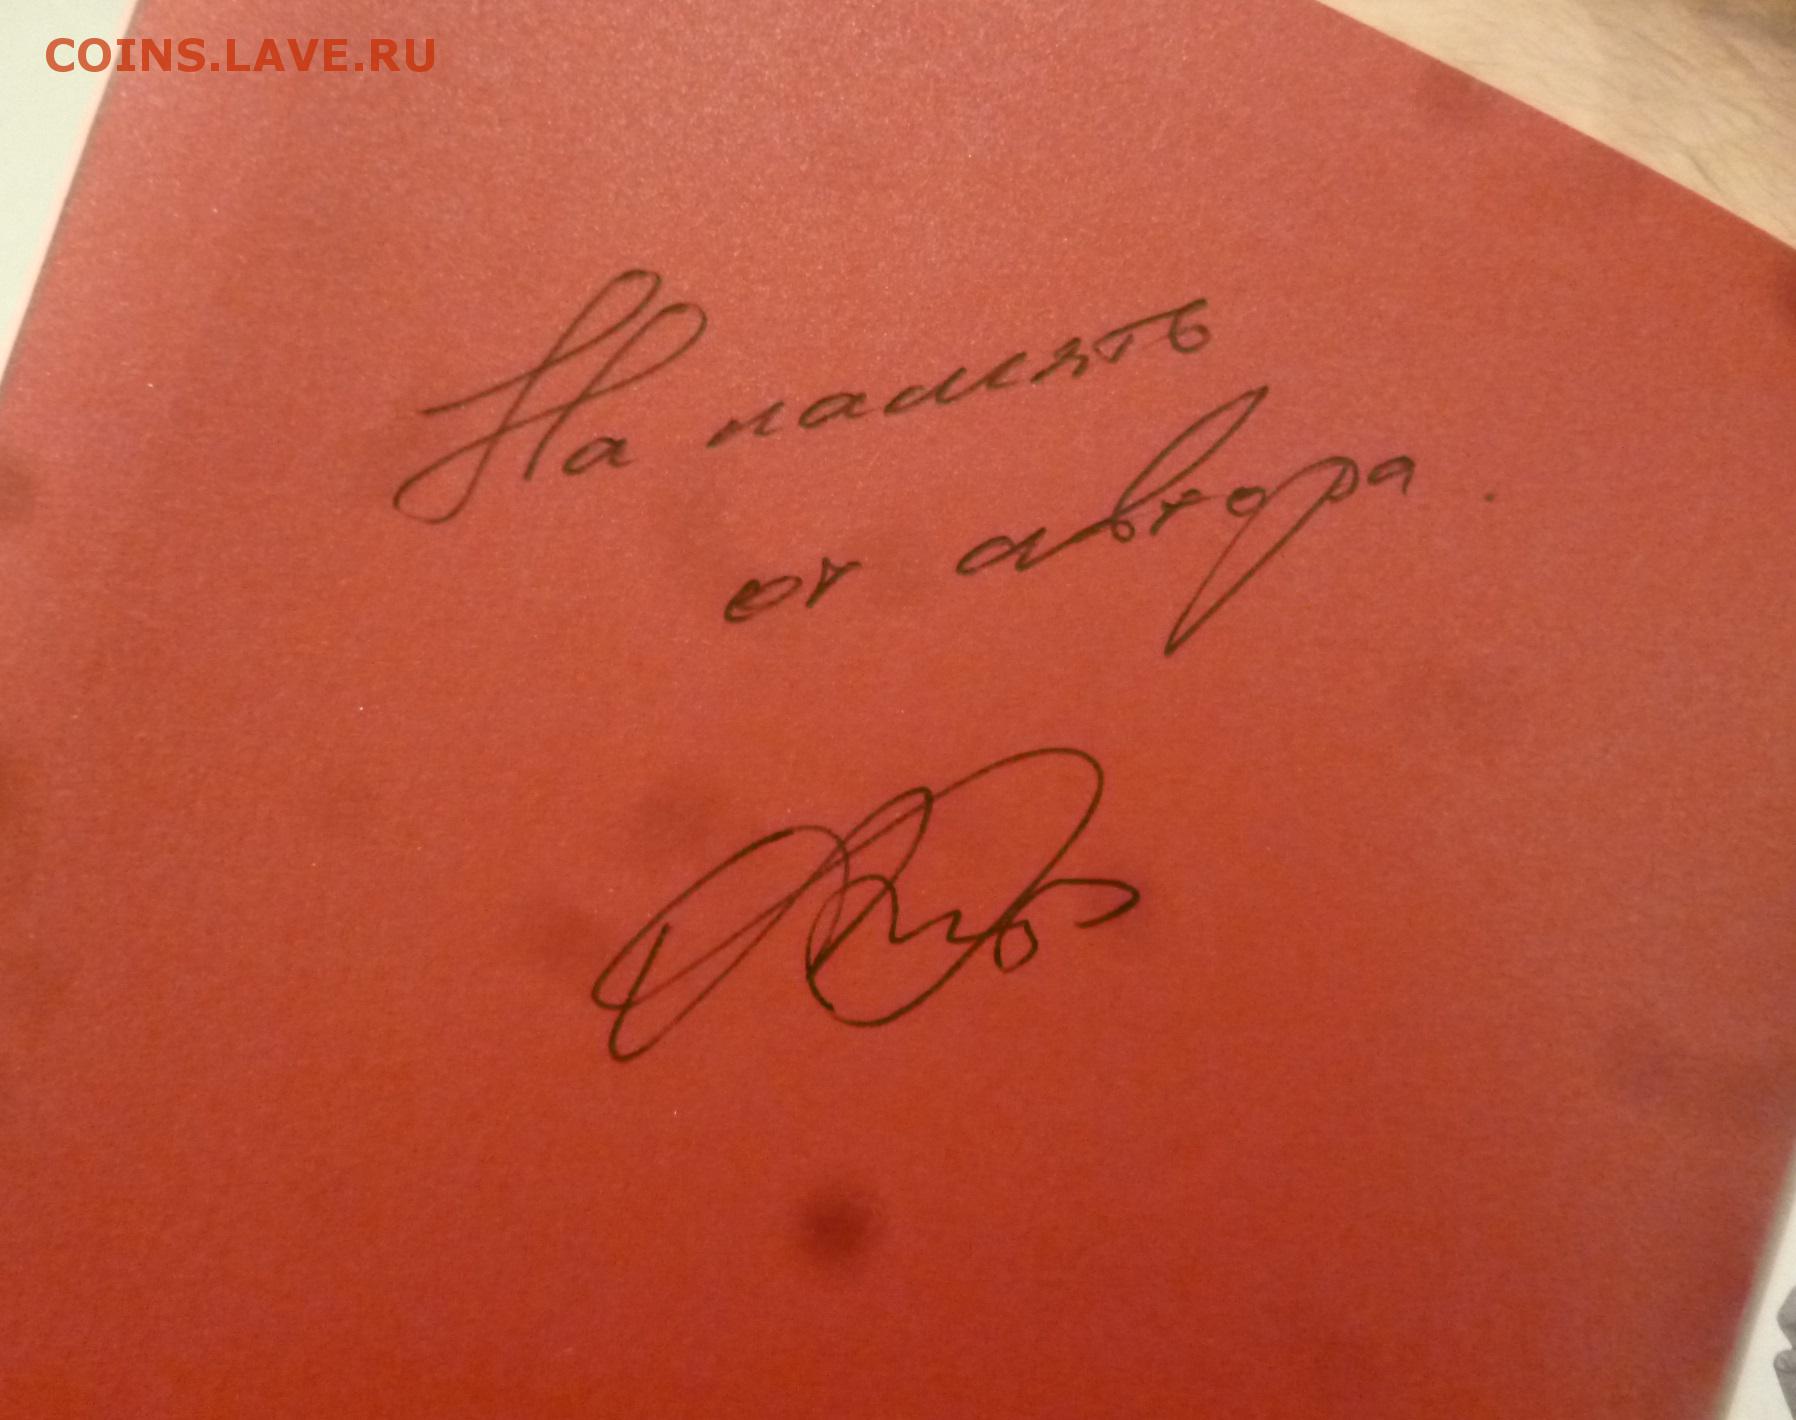 COINS.LAVE.RU
На память
от автора.